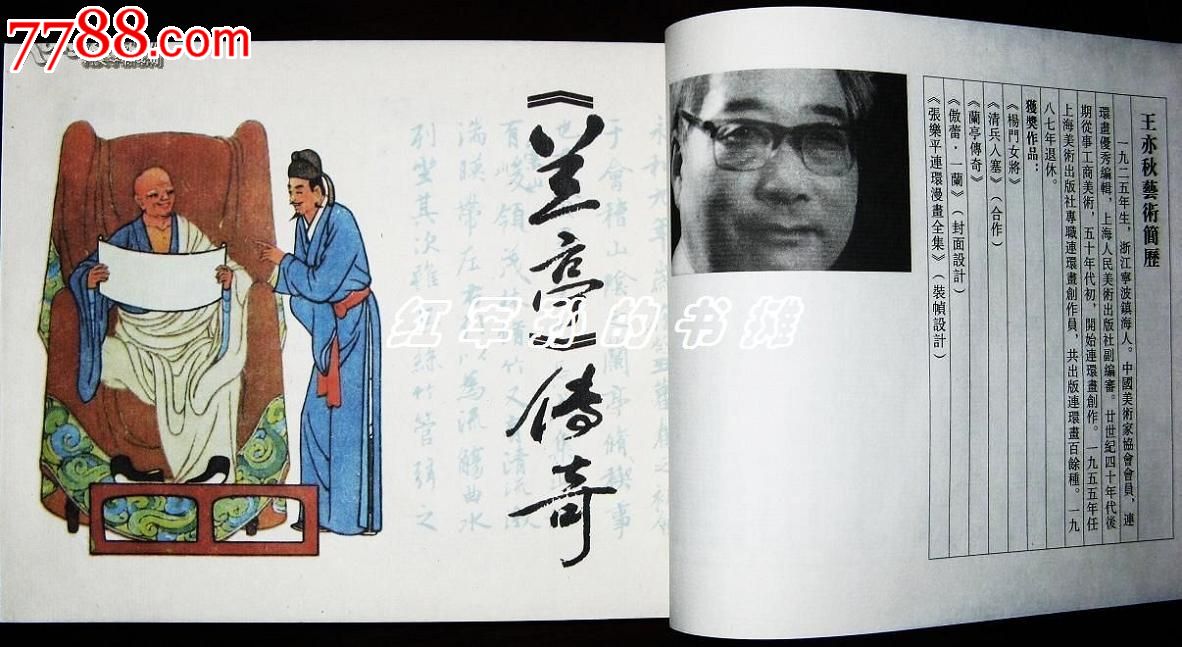 7788.com
《兰亭》传奇
永和九年歲
于會稽山陰 蘭亭脩禊事
也
有峻領茂 竹又有清流激
湍暎帶左右 以為流觴曲水
列坐其次雖 絲竹管弦之
红军 的书摊
王亦秋藝術簡歷
一九二五年生，浙江寧波鎮海人。中國美術家協會會員，連
環畫優秀編輯，上海人民美術出版社副編審。廿世紀四十年代後
期從事工商美術，五十年代初，開始連環畫創作。一九五五年任
上海美術出版社專職連環畫創作員，共出版連環畫百餘種。一九
八七年退休。
獲獎作品：
《楊門女將》
《清兵入塞》（合作）
《蘭亭傳奇》
《傲蕾·一蘭》（封面設計）
《張樂平連環漫畫全集》（裝幀設計）